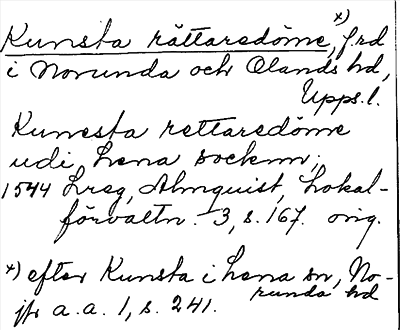 Kunsta rättaredöme,x) f.rd
i Norunda och Olands hd,
Upps.l.
Kunesta rettaredöme
udi Lena sockenn;
1544 Lreg, Almquist, Lokal-
förvaltn. 3, s. 167. orig.
x) efter Kunsta i Lena sn, No-
runda hd
jfr a.a. 1, s. 241.